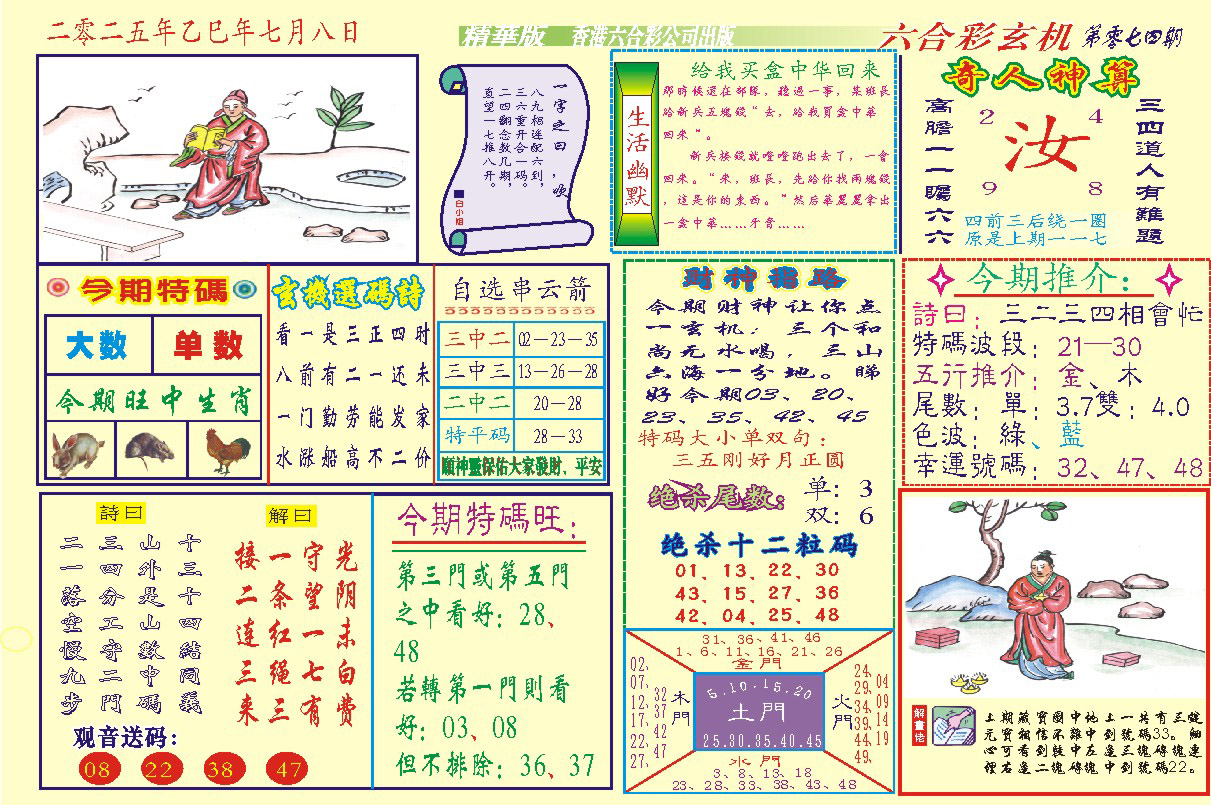 二零二五年乙巳年七月八日
精華版 香港六合彩公司出版
六合彩玄机 第零七四期
一字之曰：唤
八九相连配六到，
三六重开合一码。
二四翻念数几期，
直望一七推八开。
白小姐
生活幽默
给我买盒中华回来
那時候還在部隊，聽過一事，某班長
给新兵五塊錢“去，给我買盒中華
回来“。
新兵接錢就噔噔跑出去了，一會
回来。“来，班長，先给你找兩塊錢
，這是你的東西。”然后華麗麗拿出
一盒中華……牙膏……
奇人神算
高膽一一瞩六六
2 4
汝
9 8
三四道人有難題
四前三后绕一圈
原是上期一一七
今期特碼
大数 单数
今期旺中生肖
玄機選碼詩
看一是三正四时
八前有二一还未
一门勤劳能发家
水涨船高不二价
自选串云箭
三中二 02—23—35
三中三 13—26—28
二中二 20—28
特平码 28—33
願神靈保佑大家發財、平安
财神指路
今期财神让你点
一玄机：三个和
尚无水喝，三山
六海一分地。睇
好今期03、20、
23、35、42、45
特码大小单双句：
三五刚好月正圆
绝杀尾数：
单：3
双：6
绝杀十二粒码
01、13、22、30
43、15、27、36
42、04、25、48
今期推介：
詩曰：三二三四相會忙
特碼波段：21—30
五行推介：金、木
尾數：單：3.7雙：4.0
色波：綠、藍
幸運號碼：32、47、48
詩曰
十三十四結同義
山外是山數中碼
三四分工守二門
二一落空慢九步
解曰
光阴未白费
守望一七有
一条红绳三
接二连三来
观音送码：
08 22 38 47
今期特碼旺：
第三門或第五門
之中看好：28、
48
若轉第一門則看
好：03、08
但不排除：36、37
31、36、41、46
1、6、11、16、21、26
金門
02、07、12、17、22、27、
32、37、42、47
木門
5.10.15.20
土門
25.30.35.40.45
火門
24、29、34、39、44、49、
04、09、14、19
水門
3、8、13、18
23、28、33、38、43、48
解畫佬
上期藏寶圖中地上一共有三錠
元寶相信不難中到號碼33。細
心可看到肢中左邊三塊磚塊連
俚右邊二塊磚塊中到號碼22。